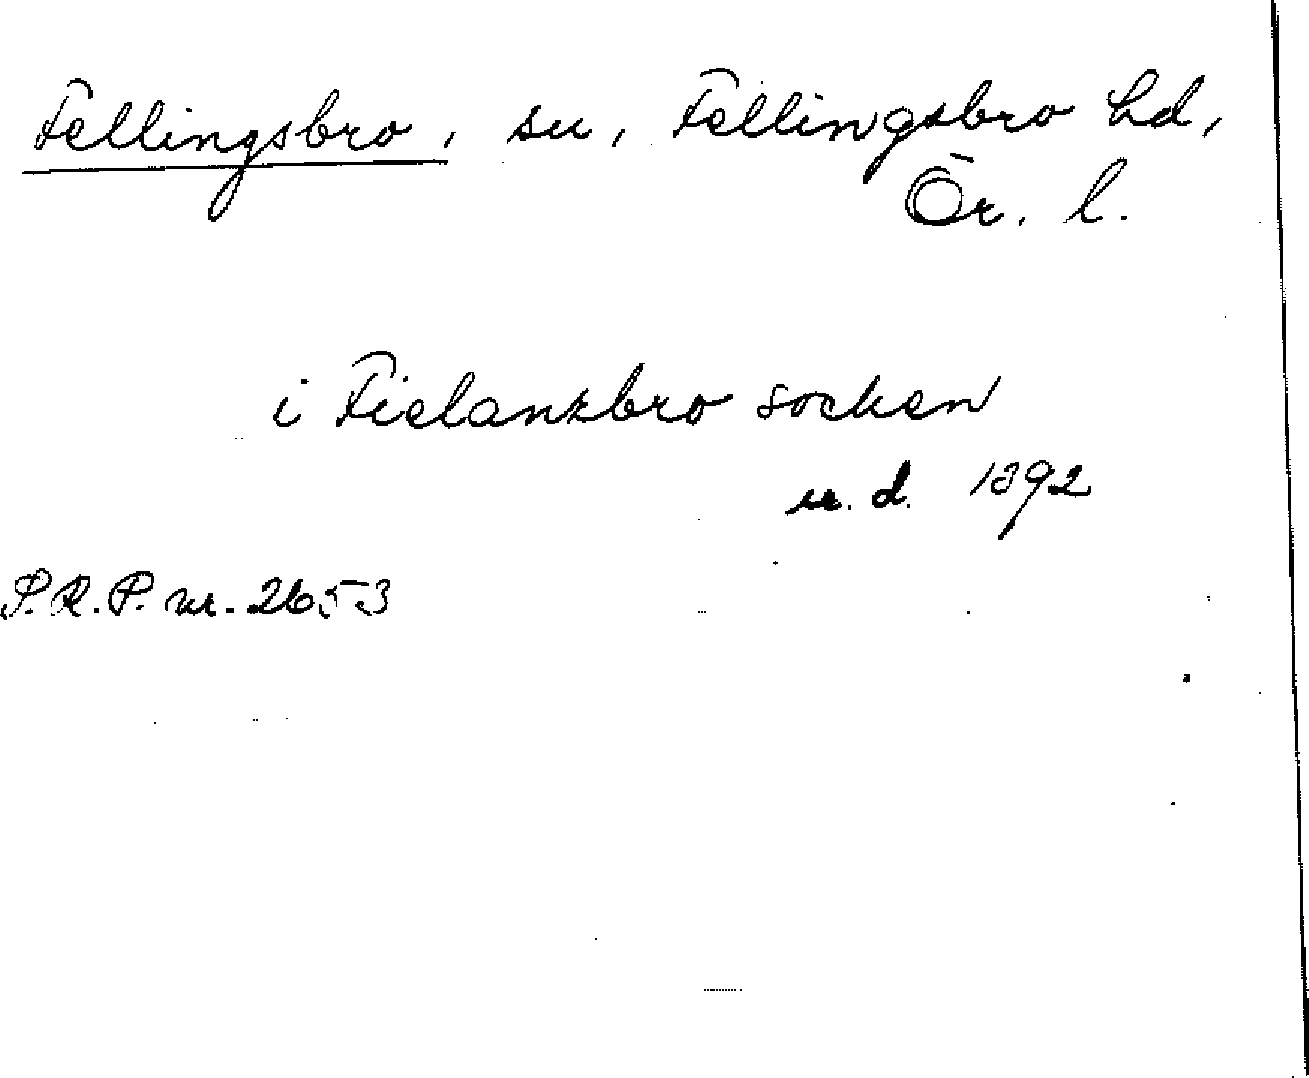 Fellingsbro, sn, Fellingsbro hd,
Ör. l.
i Fielanzbro socken
u. d. 1392
S.R.P. nr. 2653